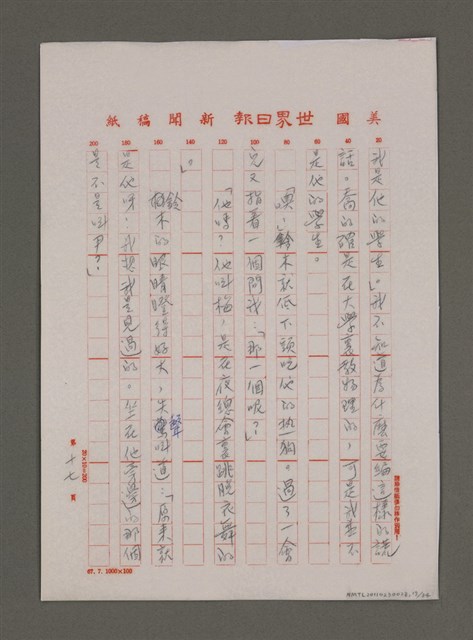 美國世界日報新聞稿紙
我是他的學生」我不知道為什麼要編這樣的謊
話。喬的確是在大學裏教物理的,可是我並不
是他的學生。
「噢,」鈴木就低下頭吃他的热狗。過了一會
兒又指着一個問我:「那一個呢?」
「他嗎?他叫梅,是在夜總會裏跳脫衣舞的
。」
鈴木的眼睛瞪得好大,失聲叫道:「原來就
是他呀,我想我是見過的。坐在他旁邊的那個
是不是叫尹?」
20
40
60
80
100
120
140
160
180
200
第十七頁
20×10=200
67.7. 1000×100